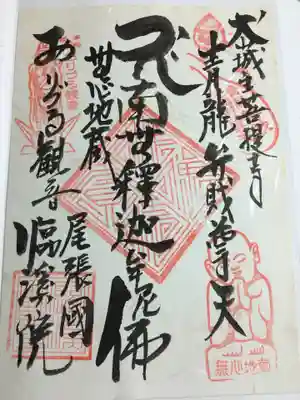 城主菩提寺
龍 弁財尊天
南無釋迦牟尼佛
無心地蔵
おりづる観音
尾張國
臨溪院
無心地蔵